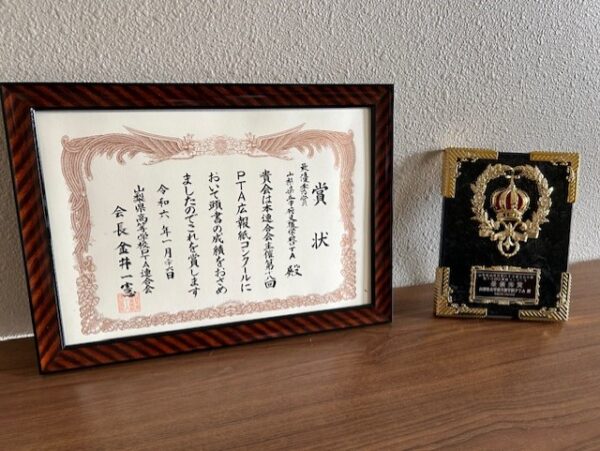 賞状
最優秀賞
山梨県立甲府 PTA 殿
貴会は本連合会主催第一八回
PTA広報紙コンクールに
おいて頭書の成績をおさめ
ましたのでこれを賞します
令和六年一月 六日
山梨県高等学校PTA連合会
会長 金井一憲
最優秀賞